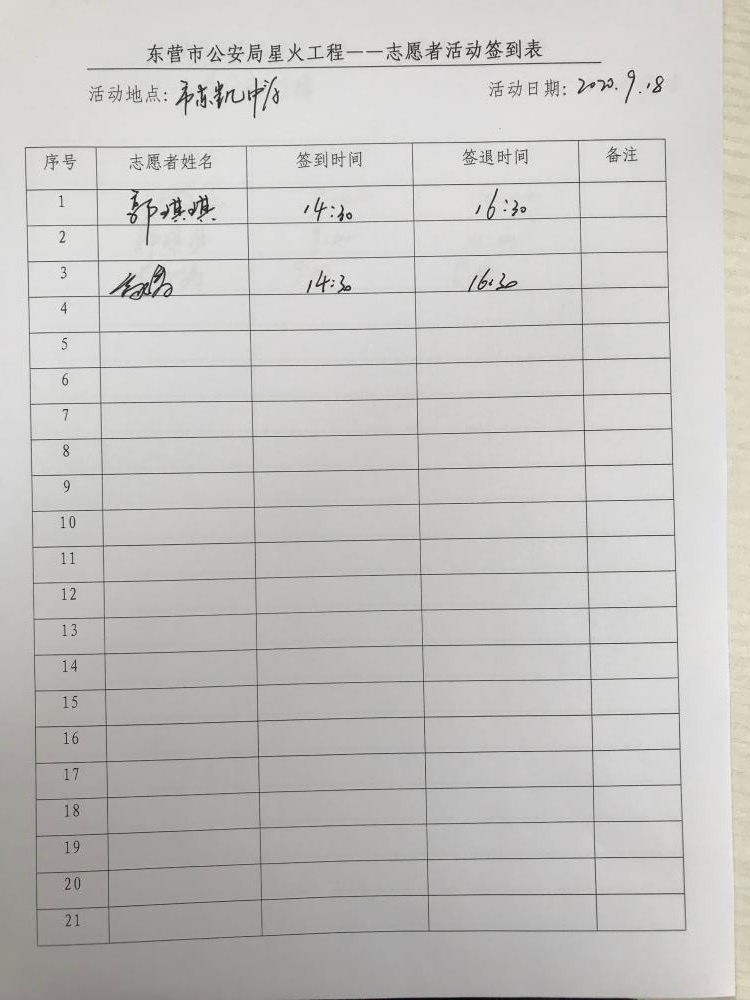 东营市公安局星火工程——志愿者活动签到表
活动地点：市东凯中学 活动日期：2020.9.18
序号 志愿者姓名 签到时间 签退时间 备注
1 郭琪琪 14:30 16:30
2
3 14:30 16:30
4
5
6
7
8
9
10
11
12
13
14
15
16
17
18
19
20
21